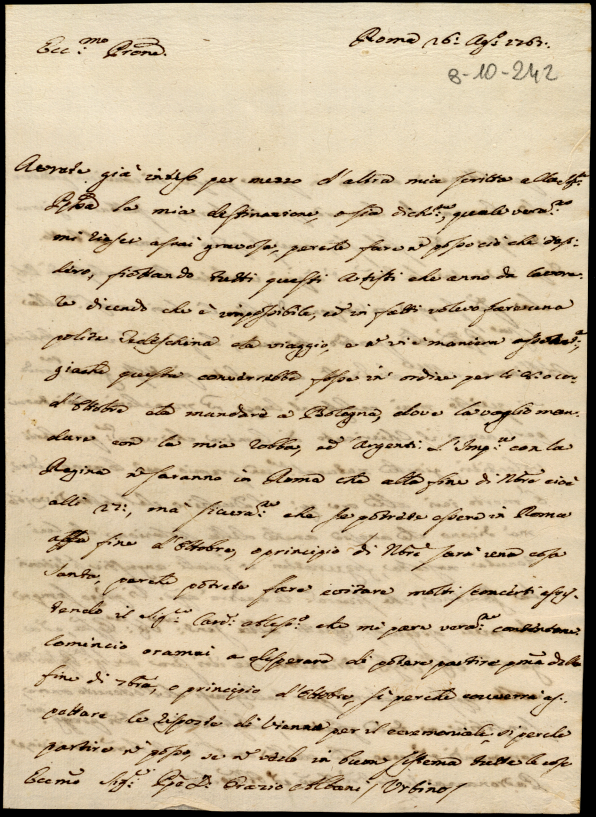 Ecc.mo Prone.
Roma 26: Ag.o 1767:
8-10-242
Averete già inteso per mezzo d'altra mia scritta alla
la mia destinazione, o sia dich.ne, quale vera.te
mi riesce assai gravosa, perche fare ñ posso ciò che desi-
dero, fiottando tutti questi Artisti che anno da lavora-
re dicendo che è impossibile, ed in fatti volevo fare una
polita Tedeschina da viaggio, e ñ vi è maniera
giache questa converrebbe fosse in ordine per li 20 cor.
d'Ottobre da mandare a Bologna, dove la voglio man-
dare con la mia robba, ed Argenti. L'Imp.re con la
Regina ñ saranno in Roma che alla fine di Nbre cioè
alli 27:, mà sicura.te che se potrete essere in Roma
alla fine d'Ottobre, o principio di Nbre sarà una cosa
santa, perche potrete fare evitare molti sconcerti assis-
tendo il Sig.re Card. che mi pare vera.te
Comincio oramai a disperare di potere partire pma della
fine di 7bre, o principio d'Ottobre, si perche converrà as-
pettare le risposte di Vienna per il ceremoniale, si perche
partire ñ posso, se ñ vedo in buon sistema tutte le cose
Eccmo Sig.re Ppe D. Orazio Albani / Urbino /